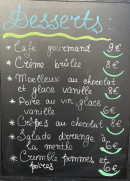 Desserts :
* Café gourmand 9€
* Crème brûlée 8€
* Moelleux au chocolat
et glace vanille 8€
* Poire au vin, glace
vanille 6€
* Crêpes au chocolat 8€
* Salade d'orange à
la menthe 6€
* Crumble pommes et
poires 6€